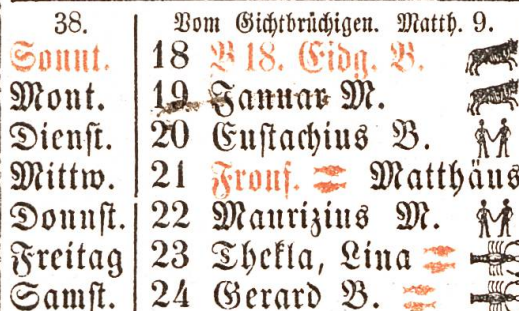 38. Vom Gichtbrüchigen. Matth. 9.
Sonnt. 18 B 18. Eidg. B.
Mont. 19 Januar M.
Dienst. 20 Eustachius B.
Mittw. 21 Fronf. Matthäus
Donnst. 22 Maurizius M.
Freitag 23 Thekla, Lina
Samst. 24 Gerard B.